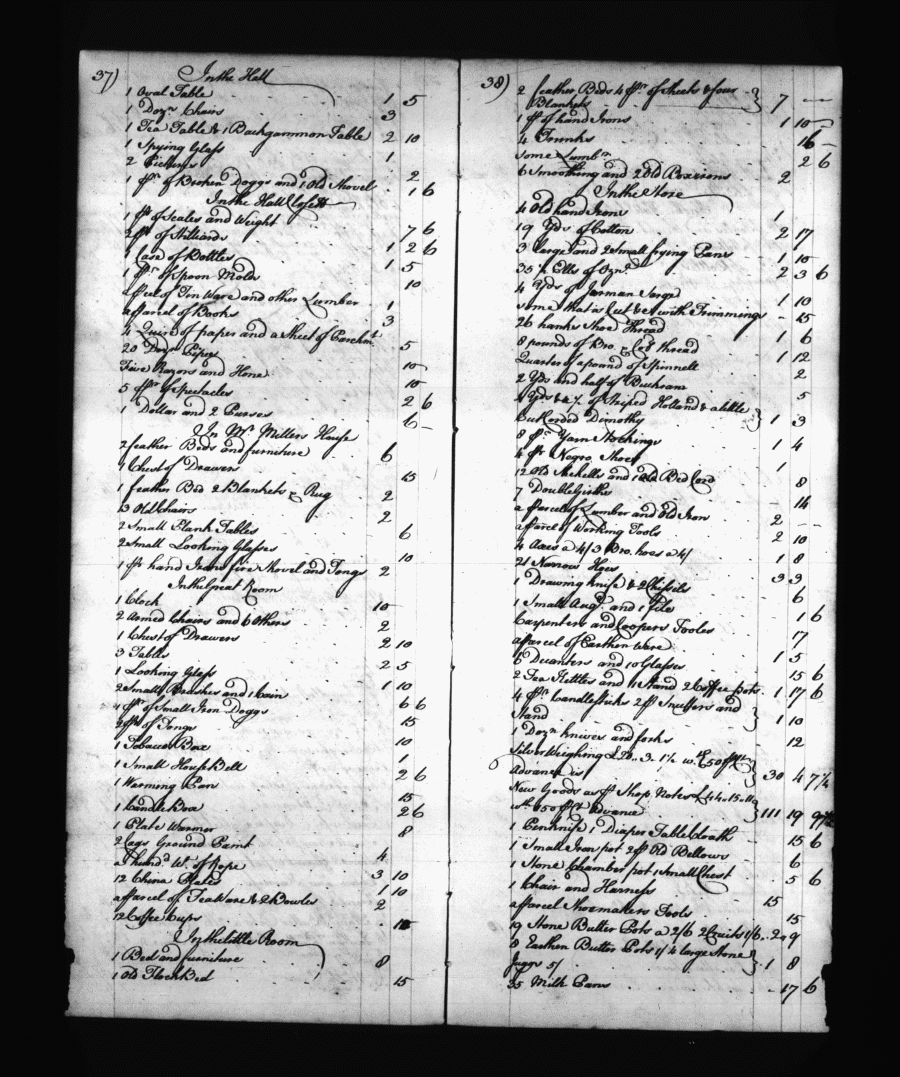 37)
In the Hall
1 Oval Table 1 5
1 Dozn. Chairs 3
1 Tea Table & 1 Backgammon Table 2 10
1 Spying Glass 1
2 Pictures 2
1 pr. of Broken Doggs and 1 Old Shovel 1 6
In the Hall Closett
1 pr. of Scales and Weight 7 6
2 pr. of Stilliards 1 2 6
1 Case of Bottles 1 5
1 pr. of Spoon Molds 10
a psel of Tin Ware and other Lumber 1
a Parcel of Books 3
4 Quire of paper and a Sheet of Parchmt. 5
20 Dozn. Pipes
Five Razors and Hone 10
5 pr. of Spectacles 10
1 Dollar and 2 Purses 2 6
6 -
In Mr. Millers House
2 feather Beds and furniture 6
1 Chest of Drawers 15
1 feather Bed 2 Blankets & Rug 2
3 Old Chairs 2
2 Small Plank Tables 6
2 Small Looking Glasses
1 pr. hand Irons fire Shovel and Tongs 10
2
In the Great Room
1 Clock 10
2 Armed Chairs and 6 Others 2
1 Chest of Drawers 2 10
3 Tables 2 5
1 Looking Glass 1 10
2 Small Brushes and 1 Cain 6 6
4 pr. of Small Iron Doggs 15
2 pr. of Tongs 10
1 Tobacco Box 1
1 Small House Bell 2 6
1 Warming Pan 15
1 Candle Box 2 6
1 Plate Warmer 8
2 Cags Ground Paint 4
a hundd. Wt. of Rope 3 10
12 China Plates 1 10
a Parcel of Tea Ware & 2 Bowles 2
12 Coffee Cups 15
In the little Room
1 Bed and furniture 8
1 Old Flock Bed 15
38)
2 feather Beds 4 pr. of Sheets & four
Blankets 7 --
1 pr. of hand Irons 1 10 -
4 Trunks 16 -
Some Lumbr. 2 6
6 Smoothing and 2 Old Irons 2
In the Store
4 Old hand Irons 1
19 Yds. of Cotton 2 17
3 Large and 2 Small frying Pans 1 10
35 1/2 Ells of Ozng. 2 3 6
4 Yds. of Jarman Serge 1 10
Some that is Cut & with Trimmings - 15
26 hanks Shoe Thread 1 6
8 pounds of Bro. & Cold. thread 1 12
Quarter of a pound of Spinnell 2
2 Yds and half of Buckram 5
4 Yds & 1/2 of Striped Holland & a little
Corded Dimothy 1 3
8 pr. Yarn Stockings 1 4
4 pr. Negro Shoes 1
12 Old Sickells and 1 Old Bed Cord 8
7 Double Girths - 14
a Parcel of Lumber and Old Iron 2 --
a Parcel of Working Tools 2 10
4 Axes a 4/ 3 Bro. hoes a 4/ 1 8
21 Narrow Hoes 3 3
1 Drawing knife & 2 Chissils 6
1 Small Augr. and 1 File 1 6
Carpenters and Coopers Tooles 17
a Parcel of Earthen Ware 1 5
6 Decanters and 10 Glasses 15 6
2 Tea Kettles and 1 Stand 2 Coffee Pots 1 17 6
4 pr. Candlesticks 2 pr. Snuffers and
Stand 1 10
1 Dozn. knives and forks 12
Silver Weighing £20.. 3. 1 1/2 wth. 50 pCt.
Advance is 30 4 7 1/2
New Goods as pr. Shop Notes £44.. 15..
wth. 150 pCt. Advance 111 19
1 Penknife 1 Diaper Table Cloath 15 6
1 Small Iron pot 2 pr. Old Bellows 6
1 Stone Chamber pot 1 Small Chest 5 6
1 Chair and Harness 15
a Parcel Shoemakers Tools 15
19 Stone Butter Pots a 2/6 2 Cruits 1/6 2 9
8 Earthen Butter Pots 1/ 4 large Stone
Juggs 5/ 1 8
35 Milk Pans - 17 6